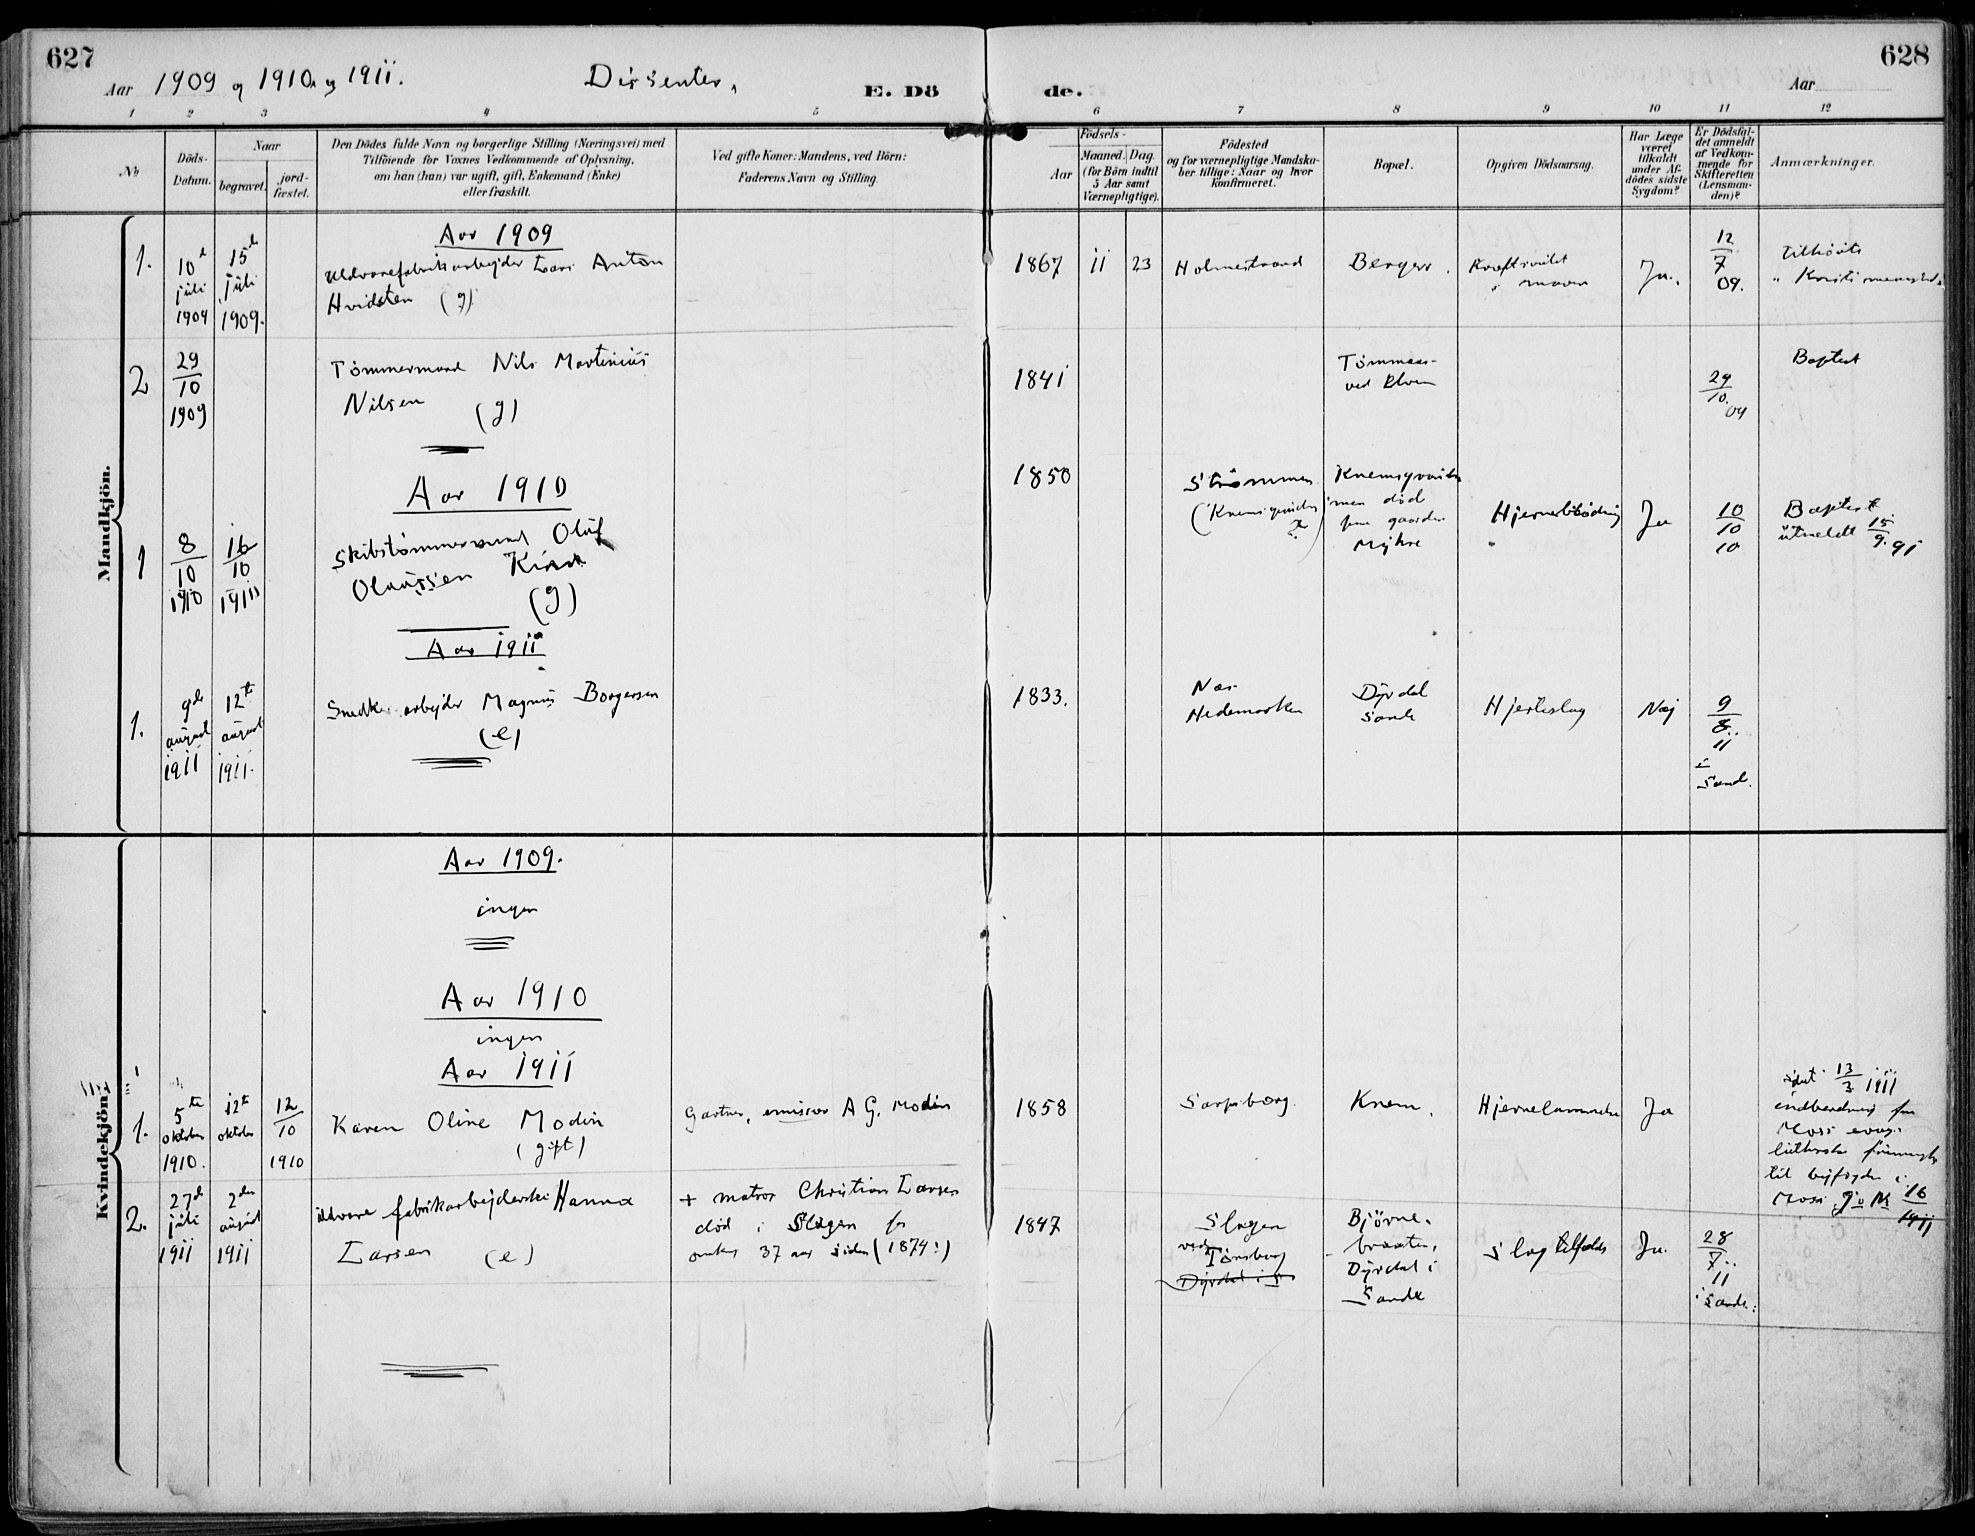 627
Aar 1909 og 1910 og 1911.
Dissenter,
E. Döde.
Aar
628
1 2 3 4 5 6 7 8 9 10 11 12
No
Döds-
Datum.
Naar
begravet.
jord-
fæstet.
Den Dödes fulde Navn og borgerlige Stilling (Næringsvei) med
Tilföiende for Voxnes Vedkommende af Oplysning,
om han (hun) var ugift, gift, Enkemand (Enke)
eller fraskilt.
Ved gifte Koner: Mandens, ved Börn:
Faderens Navn og Stilling.
Födsels-
Aar
Maaned. Dag
(for Börn indtil
5 Aar samt
Værnepligtige).
Födested
og for værnepligtige Mandska-
ber tillige: Naar og hvor
konfirmeret.
Bopæl.
Opgiven Dödsaarsag.
Har Læge
været
tilkaldt
under Af-
dödes sidste
Sygdom?
Er Dödsfal-
det anmeldt
af Vedkom-
mende for
Skifteretten
(Lensman-
den)?
Anmærkninger.
Mandkjön.
Aar 1909
1.
10d
juli
1909
15d
juli
1909.
Uldvarefabrikarbejder Lars Anton
Hvidsten (g)
1867 11 23
Holmestrand
Berger.
Kræftsvulst
i maven
Ja.
12
7
09.
2
29
10
1909
Tømmermand Nils Martinius
Nilsen (g)
1841
29
10.
09
Baptist
Aar 1910
1
8
10
1910
16
10
Skibstømmermand Oluf
Olaussen
(g)
1850
Strømmen
men død
gaarden
Myhre
Ja
10
10
10
Baptist
utmeldt 15
9. 91
Aar 1911
1.
9de
august
1911
12te
august
1911.
Snedkerarbejder Magnus Borgersen
(e)
1833.
Næs
Hedemarken
Dyrdal
Sande
Hjerteslag
Nej
9
8
11
i
Sande.
Kvindekjön.
Aar 1909.
ingen
Aar 1910
ingen
Aar 1911
1.
5te
oktober
1910.
12te
oktober
12
10
1910
Karen Oline Modin
(gift)
Gartner, emissær A G. Modin
1858
Sarpsborg.
Knem.
Ja
13
3 1911
Moss
til byfogden i
Moss
16
1911
2.
27de
juli
1911
2den
august
1911
Uldvarefabrikarbejderske Hanna
Larsen (e)
+ matros Christian Larsen
død i Slagen for
omkr 37 aar siden (1874?)
1847
Slagen
ved
Tønsberg
Dyrdal i S
Bjørne-
braaten,
Dyrdal i
Sande
Slagtilfælde
Ja.
28
7
11
i Sande.